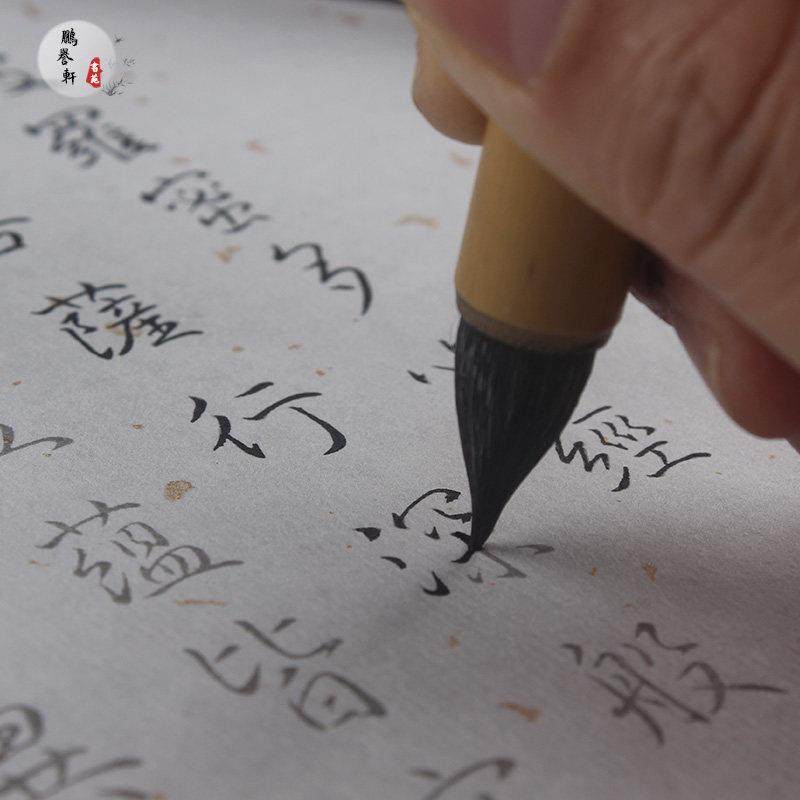 鵬譽軒
書苑
羅蜜多經
薩行深般
蘊皆